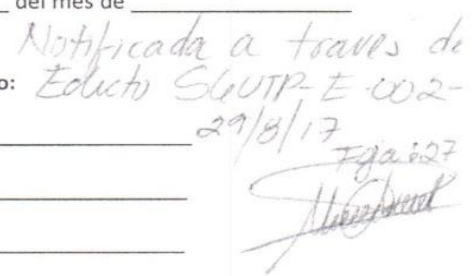 del mes de
Notificada a traves de
o: Edicto SGUTP-E-002-
29/8/17
Foja: 27